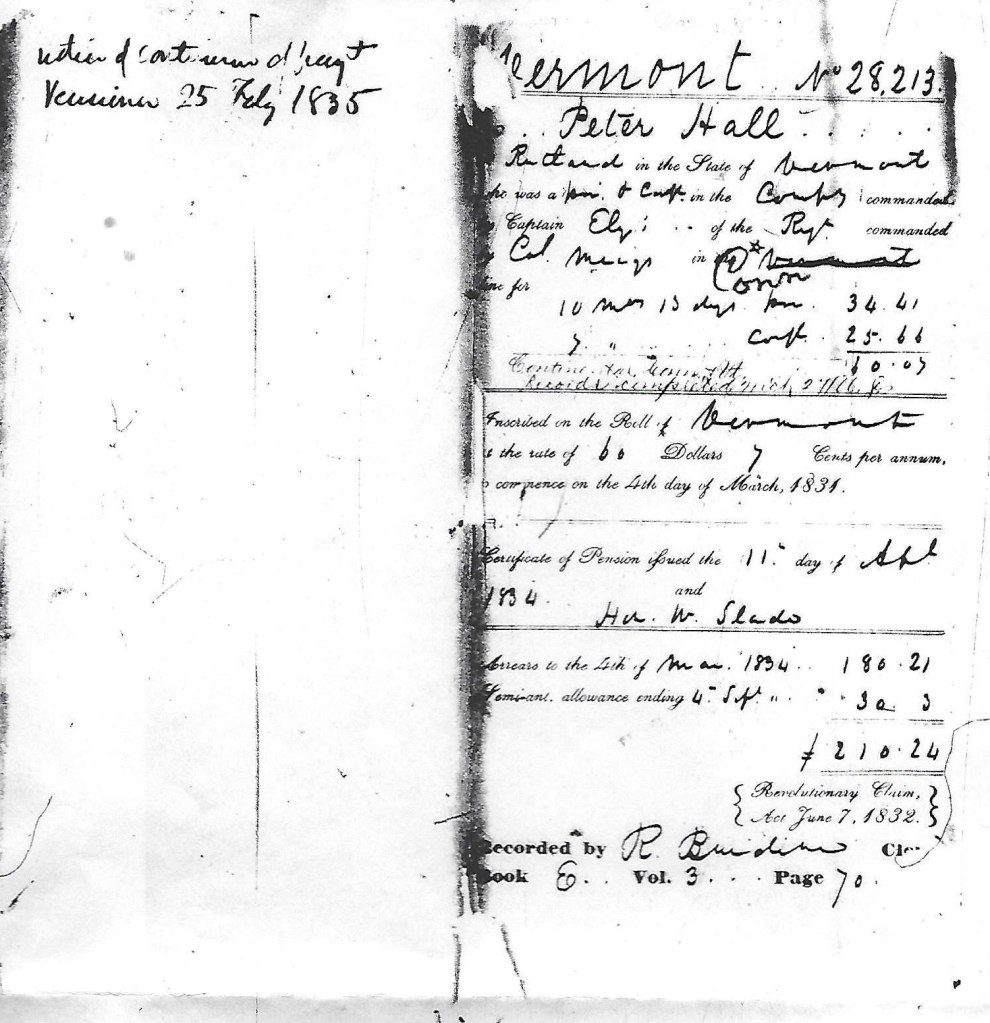 25 Feby 1835
Vermont No 28,213.
Peter Hall
Rutland in the State of Vermont
who was a in the commanded
by Captain Ely of the Regt commanded
by Col. Meigs in the Vermont
Conn
line for
10 mos 13 dys 34.41
7 " 25.66
60.07
Records completed
Inscribed on the Roll of Vermont
at the rate of 60 Dollars 7 Cents per annum,
to commence on the 4th day of March, 1831.
Certificate of Pension issued the 11" day of Apl
1834 and
Hon. W. Slade
Arrears to the 4th of Mar. 1834 180.21
Semi-anl. allowance ending 4" Sept " 30 3
210.24
{ Revolutionary Claim, }
{ Act June 7, 1832. }
Recorded by R.
Book E. Vol. 3 Page 70.